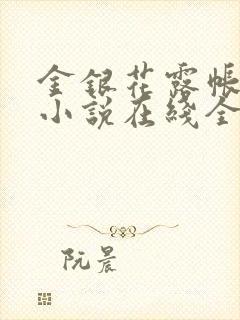 金银花露帐
小说在线全
阮晨